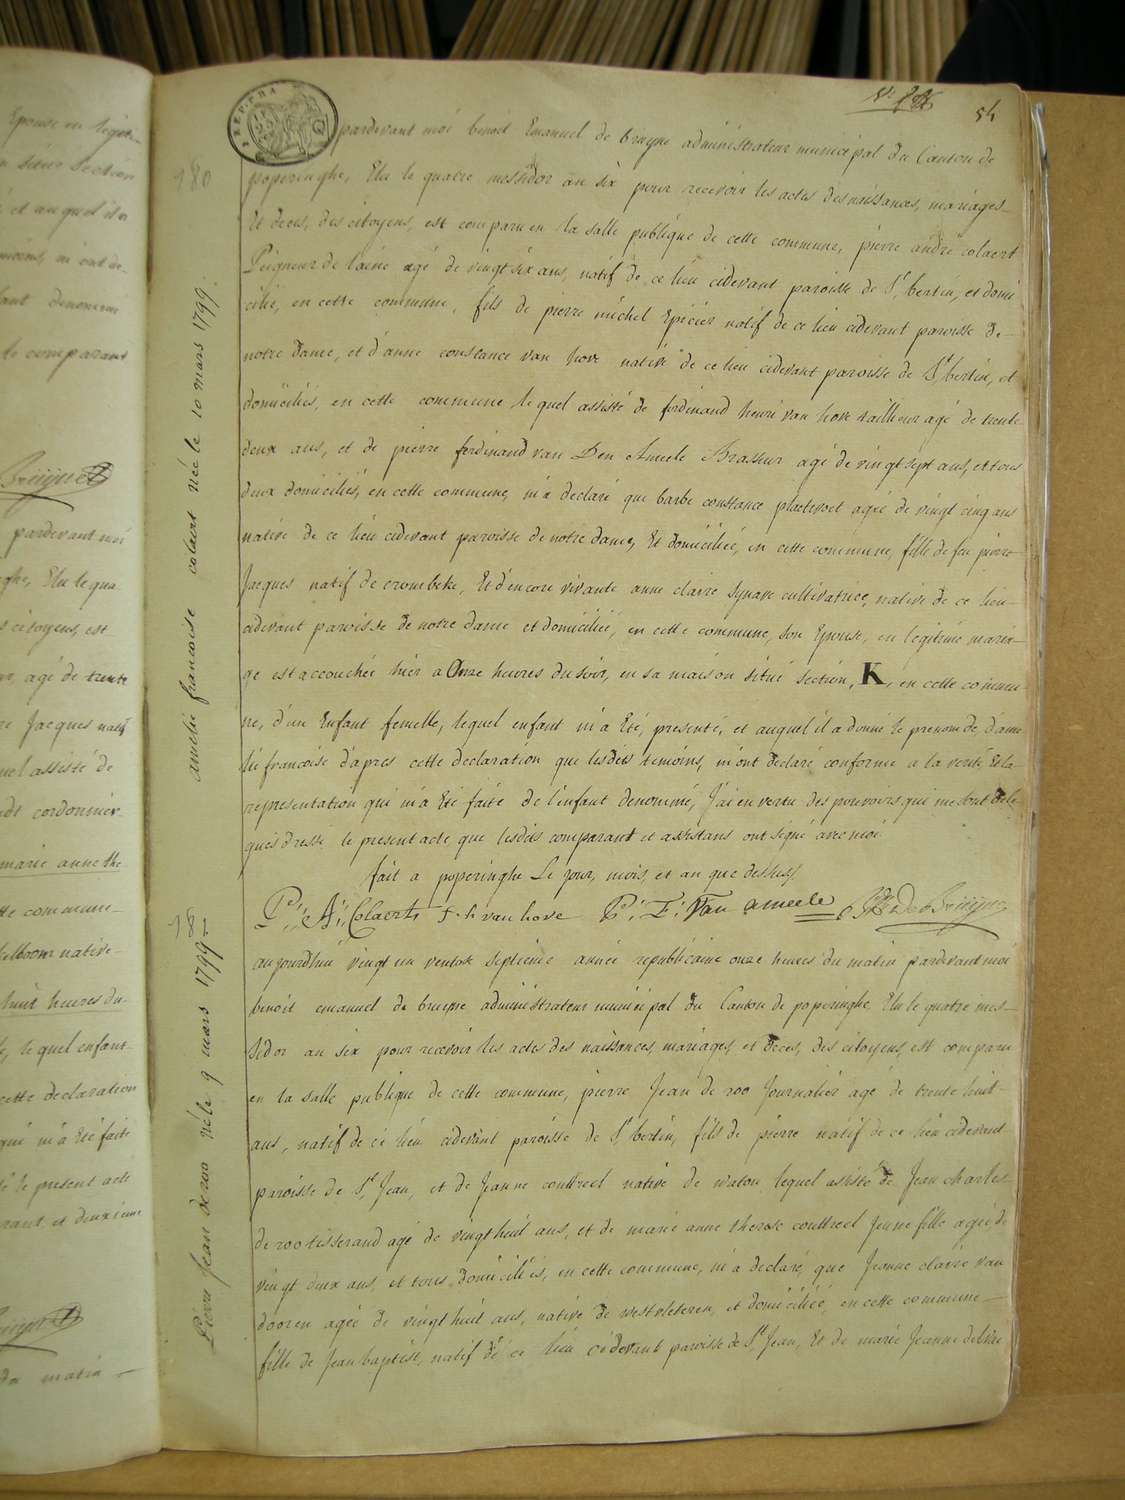 54
pardevant moi benoit Emanuel de bruyne administrateur municipal du Canton de
poperinghe, Elu le quatre messidor an six pour recevoir les actes des naissances, mariages
Et deces, des citoyens, est comparu en la salle publique de cette commune, pierre andré colaert
Peigneur de laine agé de vingt six ans, natif de ce lieu cidevant paroisse de St bertin, et domi
cilié, en cette commune, fils de pierre michel Epicier natif de ce lieu cidevant paroisse de
notre dame, et d'anne constance van hove native de ce lieu cidevant paroisse de St bertin, et
domiciliés, en cette commune lequel assisté de ferdinand henri van hove tailleur agé de trente
deux ans, et de pierre ferdinand van Den Ameele Brasseur agé de vingt sept ans, et tous
deux domiciliés, en cette commune, m'a declaré que barbe constance plaetevoet agée de vingt cinq ans
native de ce lieu cidevant paroisse de notre dame, Et domiciliée, en cette commune, fille de feu pierre
Jacques natif de crombeke, Et d'encore vivante anne claire Synave cultivatrice, native de ce lieu
cidevant paroisse de notre dame et domiciliée, en cette commune, son Epouse, en legitime maria-
ge est accouchée hier a Onze heures du soir, en sa maison situé section, K, en cette commu-
ne, d'un Enfant femelle, lequel enfant m'a Eté, presenté, et auquel il a donné le prenom de, d'ame
lié françoise d'apres cette declaration que lesdits temoins, m'ont declaré conforme a la verité Et la
representation qui m'a Eté faite de l'enfant denommé, J'ai en vertu des pouvoirs qui me sont dele
gués dressé le present acte que lesdits comparant et assistans ont signé avec moi
fait a poperinghe Le jour, mois, et an que dessus,
P: A: Colaert f. h van hove P: F: Van ameele B E De Bruyne
aujourdhui vingt un ventose septieme année republicaine onze heures du matin pardevant moi
benoit emanuel de bruyne administrateur municipal du Canton de poperinghe Elu le quatre mes-
sidor an six pour recevoir les actes des naissances, mariages, et deces, des citoyens, est comparu
en la salle publique de cette commune, pierre Jean de roo Journalier agé de trente huit
ans, natif de ce lieu cidevant paroisse de St bertin, fils de pierre natif de ce lieu cidevant
paroisse de St Jean, et de Jeanne couttreel native de watou lequel assisté de Jean charles
de roo tisserand agé de vingt huit ans, et de marie anne therese couttreel Jeune fille agée de
vingt deux ans, et tous domiciliés, en cette commune, m'a declaré, que Jeanne claire van
dooren agée de vingt huit ans, native de westvleteren, et domiciliée, en cette commune
fille de Jean baptiste, natif de ce lieu cidevant paroisse de St Jean, Et de marie Jeanne
180
amelie francoise colaert née le 10 mars 1799
181
Pierre Jean de roo né le 9 mars 1799
pardevant moi
Elu le qua
citoyens, est
agé de trente
Jacques natif
assisté de
cordonnier
marie anne the
commune
native
huit heures du
lequel enfant
cette declaration
qui m'a Eté faite
le present acte
et deuxieme
le comparant